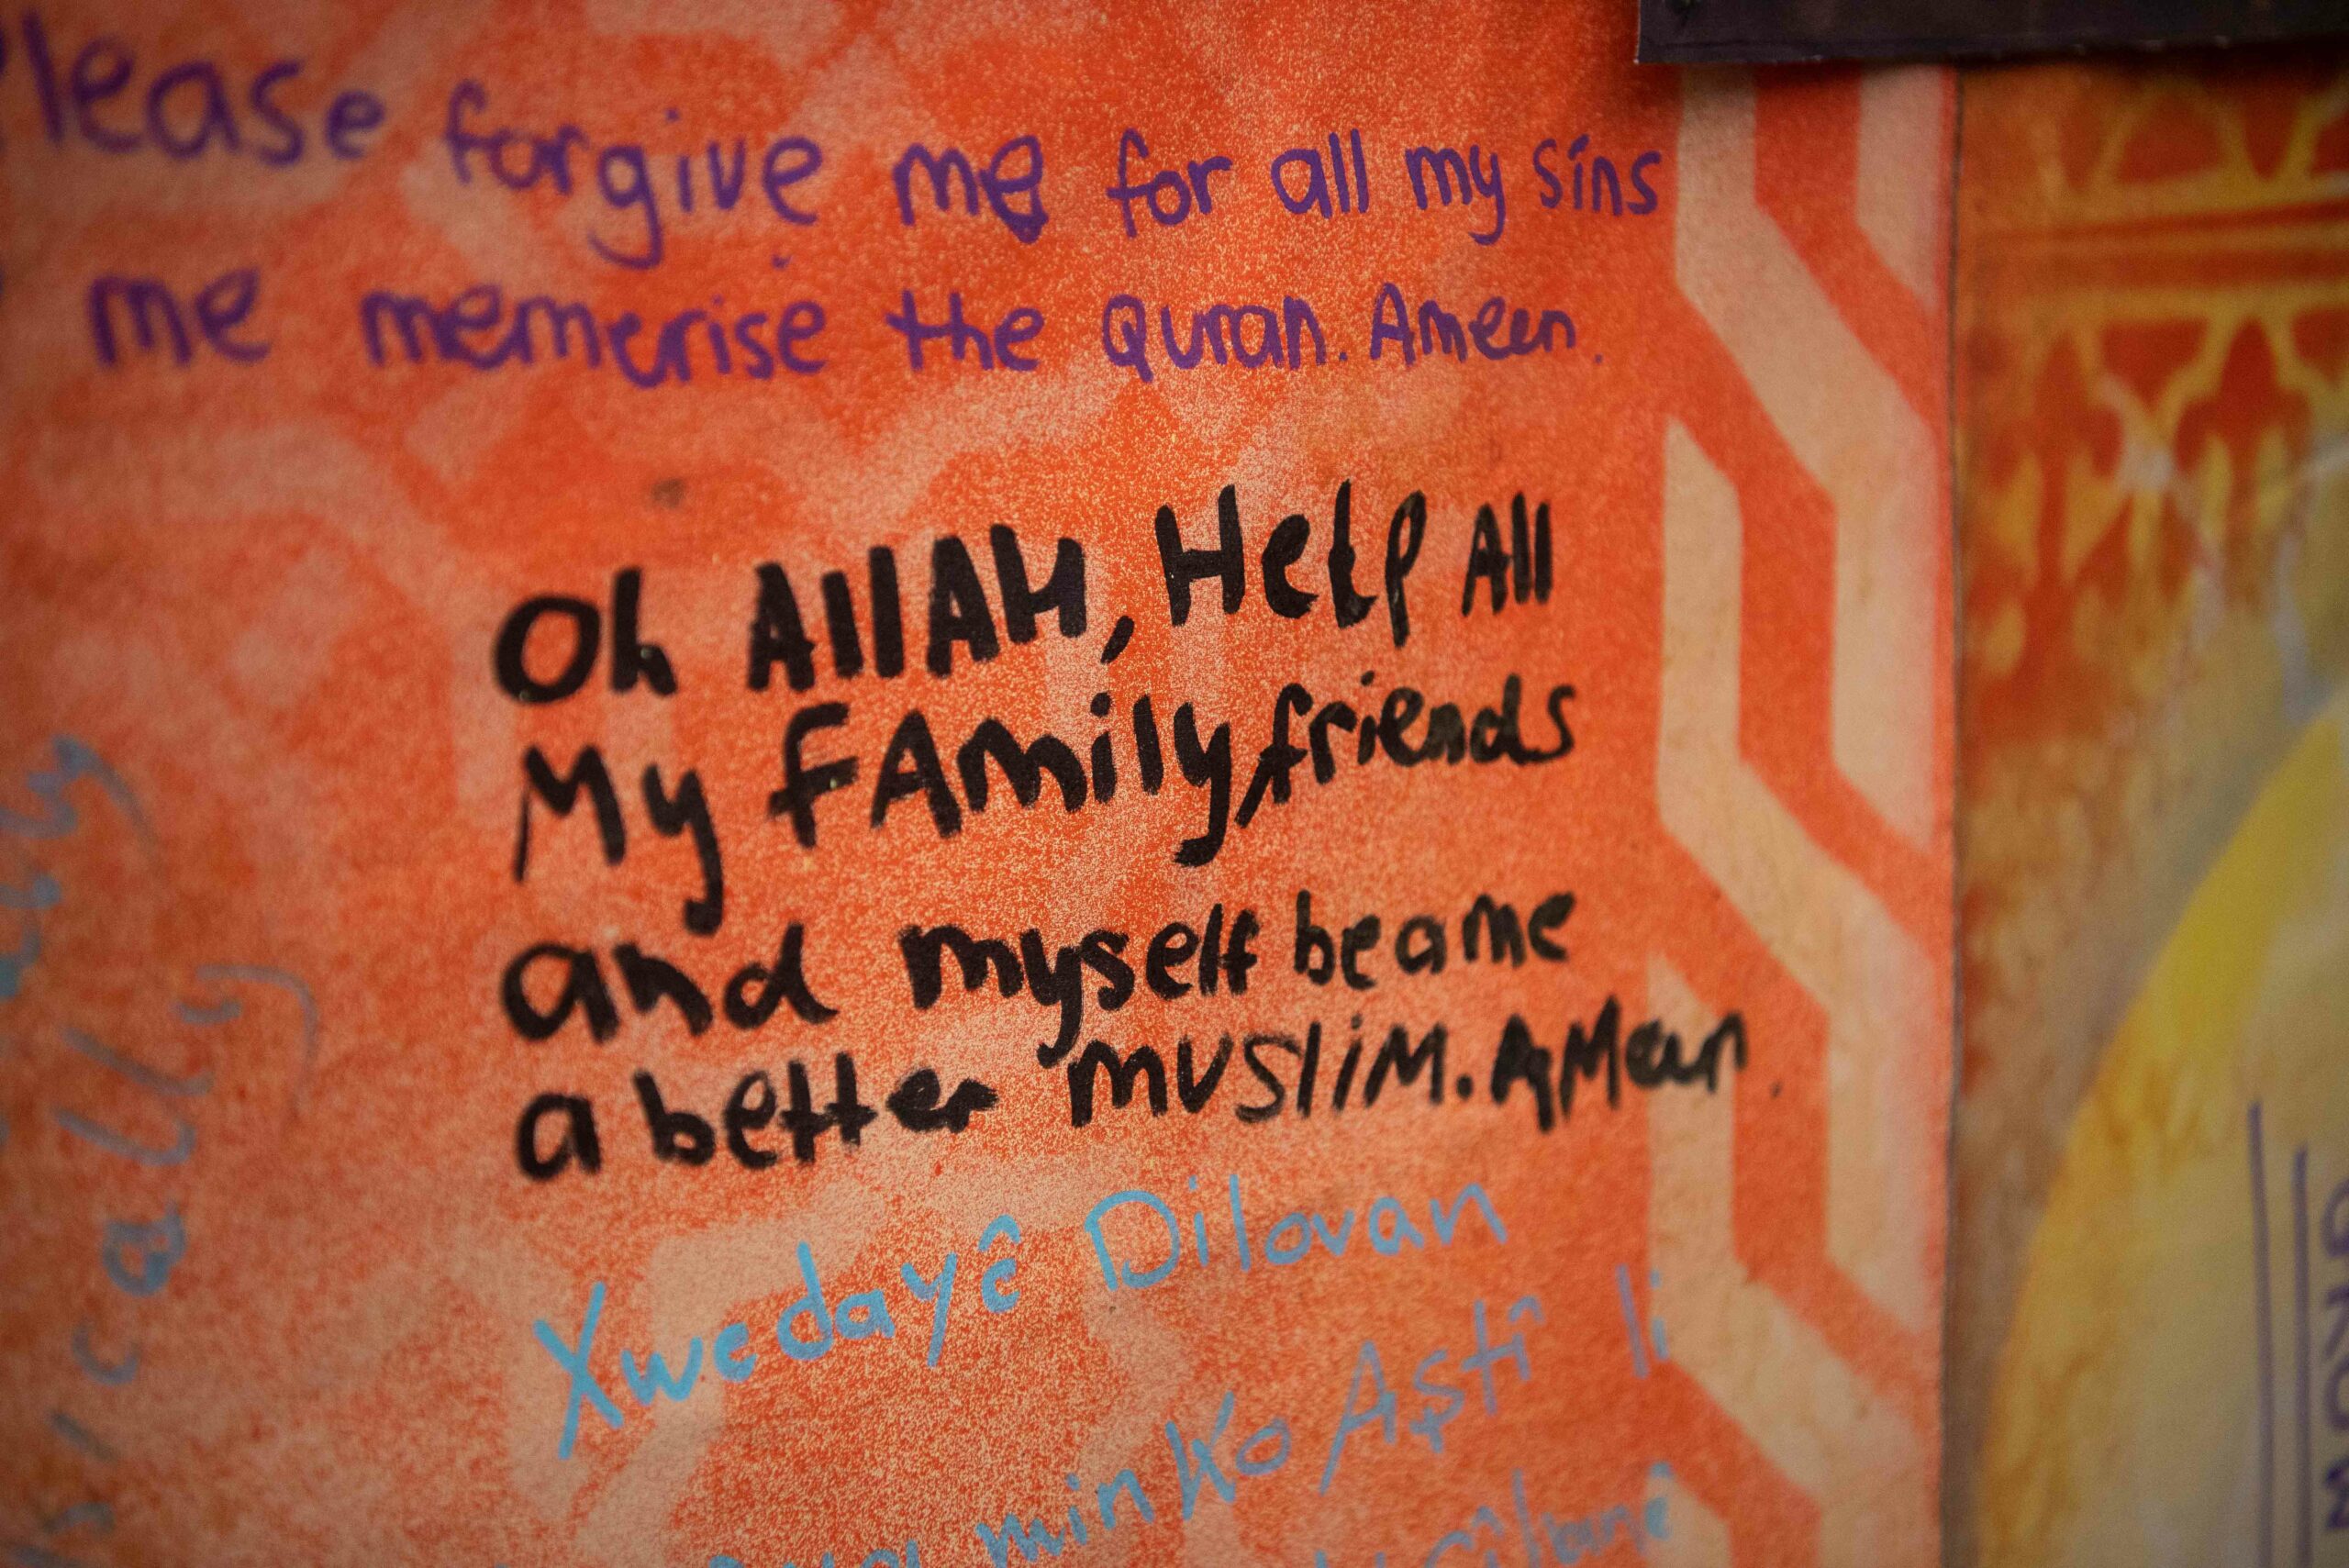 Please forgive me for all my sins
me memerise the Quran. Ameen.
Oh AllAH, Help All
My FAmily, friends
and myself beame
a better muslim. AMean.
Xwedayê Dilovan
min ko Aştî li
ically
MOND